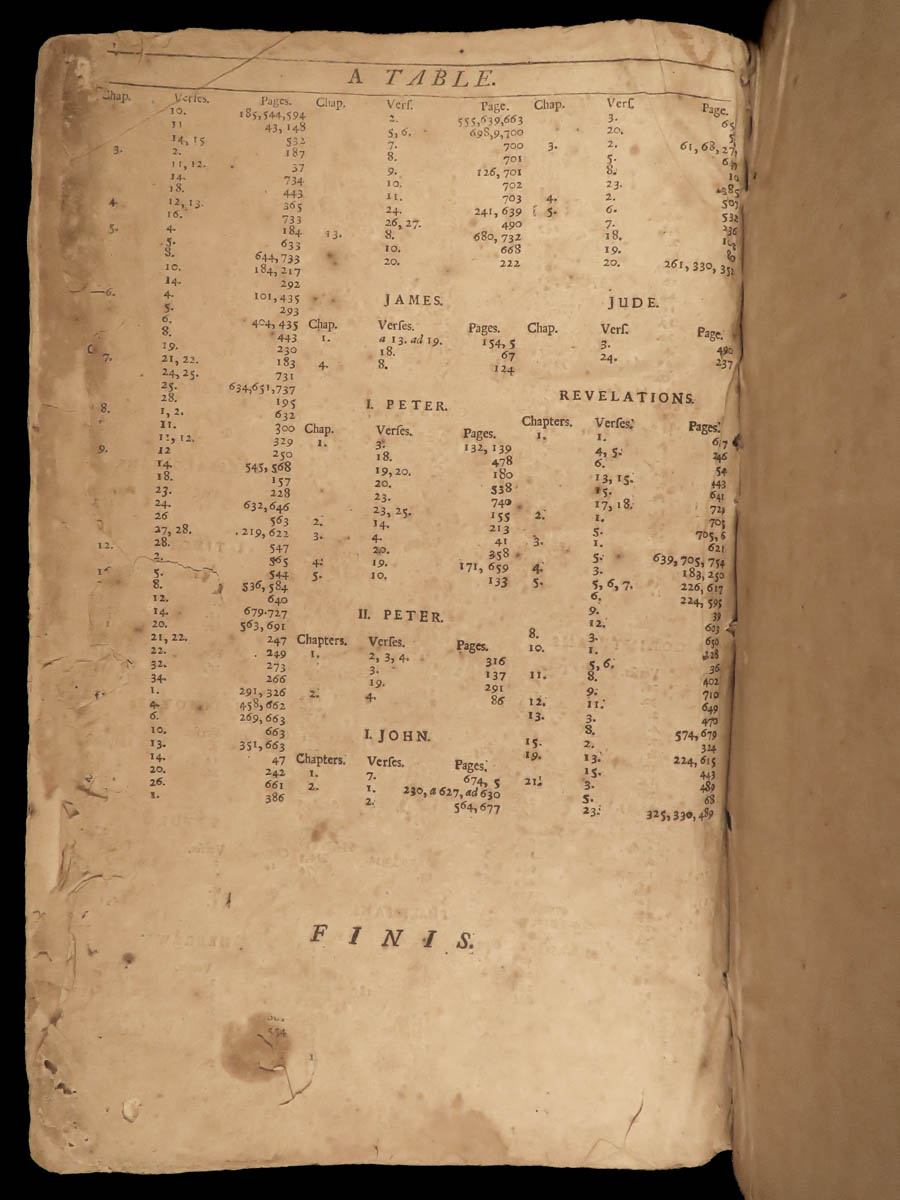 A TABLE.
Chap. Verses. Pages.
10. 185,544,594
11 43, 148
14, 15 532
3. 2. 187
11, 12. 37
14. 734
18. 443
4. 12, 13. 365
16. 733
5. 4. 184
5. 633
8. 644,733
10. 184,217
14. 292
6. 4. 101,435
5. 293
6. 404,435
8. 443
19. 230
7. 21, 22. 183
24, 25. 731
25. 634,651,737
28. 195
8. 1, 2. 632
11. 300
11, 12. 329
9. 12 250
14. 545, 568
18. 157
23. 228
24. 632,646
26 563
27, 28. 219,622
12. 28. 547
2. 565
5. 544
8. 536, 584
12. 640
14. 679.727
20. 563,691
21, 22. 247
22. 249
32. 273
34. 266
1. 291,326
4. 458,662
6. 269,663
10. 663
13. 351,663
14. 47
20. 242
26. 661
1. 386
Chap. Verſ. Page.
2. 555,639,663
5, 6. 698,9,700
7. 700
8. 701
9. 126, 701
10. 702
11. 703
24. 241, 639
26, 27. 490
13. 8. 680, 732
10. 668
20. 222
JAMES.
Chap. Verſes. Pages.
1. a 13. ad 19. 154, 5
18. 67
4. 8. 124
I. PETER.
Chap. Verſes. Pages.
1. 3. 132, 139
18. 478
19, 20. 180
20. 538
23. 740
23, 25. 155
2. 14. 213
3. 4. 41
20. 358
4. 19. 171, 659
5. 10. 133
II. PETER.
Chapters. Verſes. Pages.
1. 2, 3, 4. 316
3. 137
19. 291
2. 4. 86
I. JOHN.
Chapters. Verſes. Pages.
1. 7. 674, 5
2. 1. 230, a 627, ad 630
2. 564, 677
Chap. Verſ. Page.
3. 65
20.
3. 2. 61, 68, 27
5.
8. 10
23.
4. 2.
5. 6. 532
7. 236
18.
19. 80
20. 261, 330, 352
JUDE.
Chap. Verſ. Page.
3. 490
24. 237
REVELATIONS.
Chapters. Verſes. Pages.
1. 1. 617
4, 5. 246
6. 54
13, 15. 443
15. 641
17, 18. 721
2. 1. 705
5. 705, 6
3. 1. 621
5. 639, 705, 754
4. 3. 183, 250
5. 5, 6, 7. 226, 617
6. 224, 595
9. 39
12. 603
8. 3. 650
10. 1. 228
5, 6. 36
11. 8. 402
9. 710
12. 11. 649
13. 3. 470
8. 574, 679
15. 2. 324
19. 13. 224, 615
15. 443
21. 3. 489
5. 68
23. 325, 330, 489
FINIS.
554